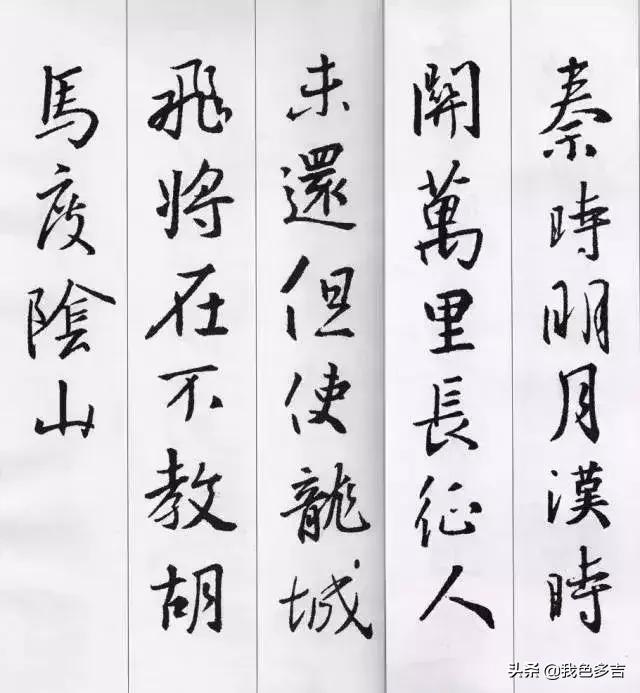 秦時明月漢時
關萬里長征人
未還但使龍城
飛將在不教胡
馬度陰山
头条 @我色多吉